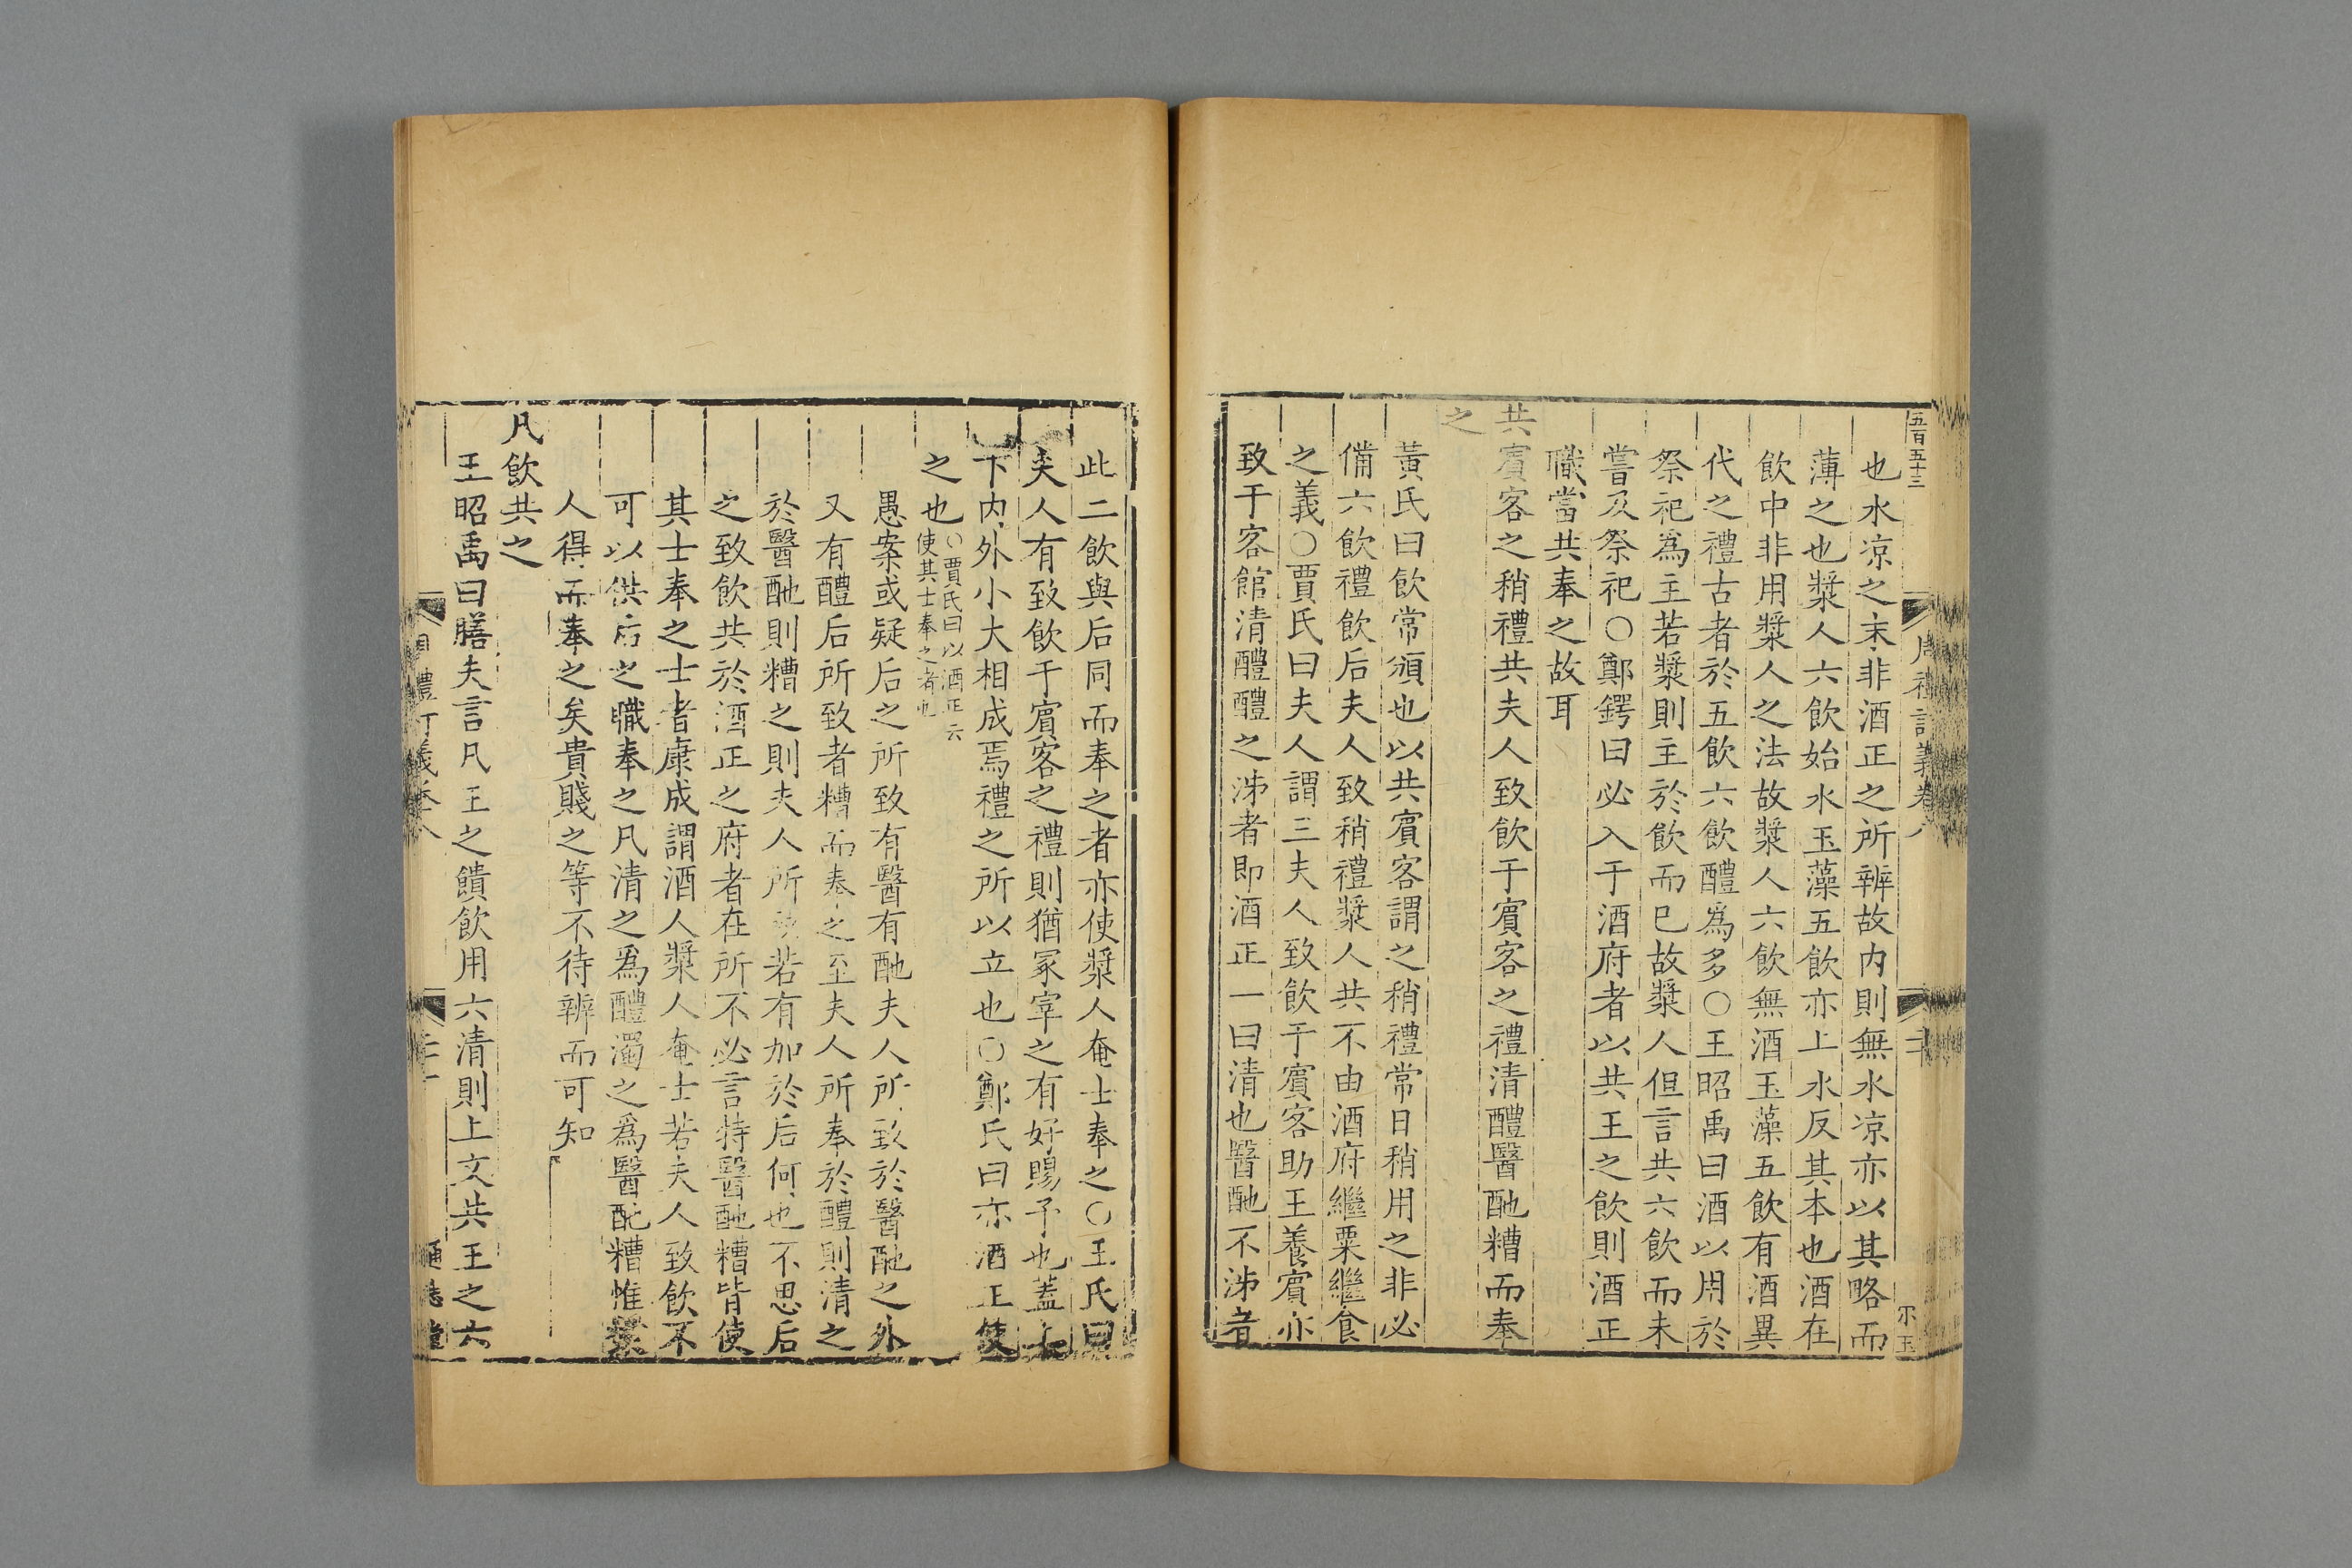 五百五十三
周禮訂義卷八
二十
尔玉
也水凉之末非酒正之所辨故内則無水凉亦以其略而
薄之也漿人六飲始水玉藻五飲亦上水反其本也酒在
飲中非用漿人之法故漿人六飲無酒玉藻五飲有酒異
代之禮古者於五飲六飲醴為多○王昭禹曰酒以用於
祭祀為主若漿則主於飲而已故漿人但言共六飲而未
嘗及祭祀○鄭鍔曰必入于酒府者以共王之飲則酒正
職當共奉之故耳
共賓客之稍禮共夫人致飲于賓客之禮清醴醫酏糟而奉
之
黃氏曰飲常頒也以共賓客謂之稍禮常日稍用之非必
備六飲禮飲后夫人致稍禮漿人共不由酒府繼粟繼食
之義○賈氏曰夫人謂三夫人致飲于賓客助王養賓亦
致于客館清醴醴之泲者即酒正一曰清也醫酏不泲者
此二飲與后同而奉之者亦使漿人奄士奉之○王氏曰
夫人有致飲于賓客之禮則猶冢宰之有好賜予也蓋上
下内外小大相成焉禮之所以立也○鄭氏曰亦酒正使
之也○賈氏曰以酒正云使其士奉之者也
愚案或疑后之所致有醫有酏夫人所致於醫酏之外
又有醴后所致者糟而奉之至夫人所奉於醴則清之
於醫酏則糟之則夫人所若有加於后何也不思后
之致飲共於酒正之府者在所不必言特醫酏糟皆使
其士奉之士者康成謂酒人漿人奄士若夫人致飲不
可以供后之職奉之凡清之為醴濁之為醫酏糟惟漿
人得而奉之矣貴賤之等不待辨而可知
凡飲共之
王昭禹曰膳夫言凡王之饋飲用六清則上文共王之六
周禮訂義卷八
二十一
通志堂